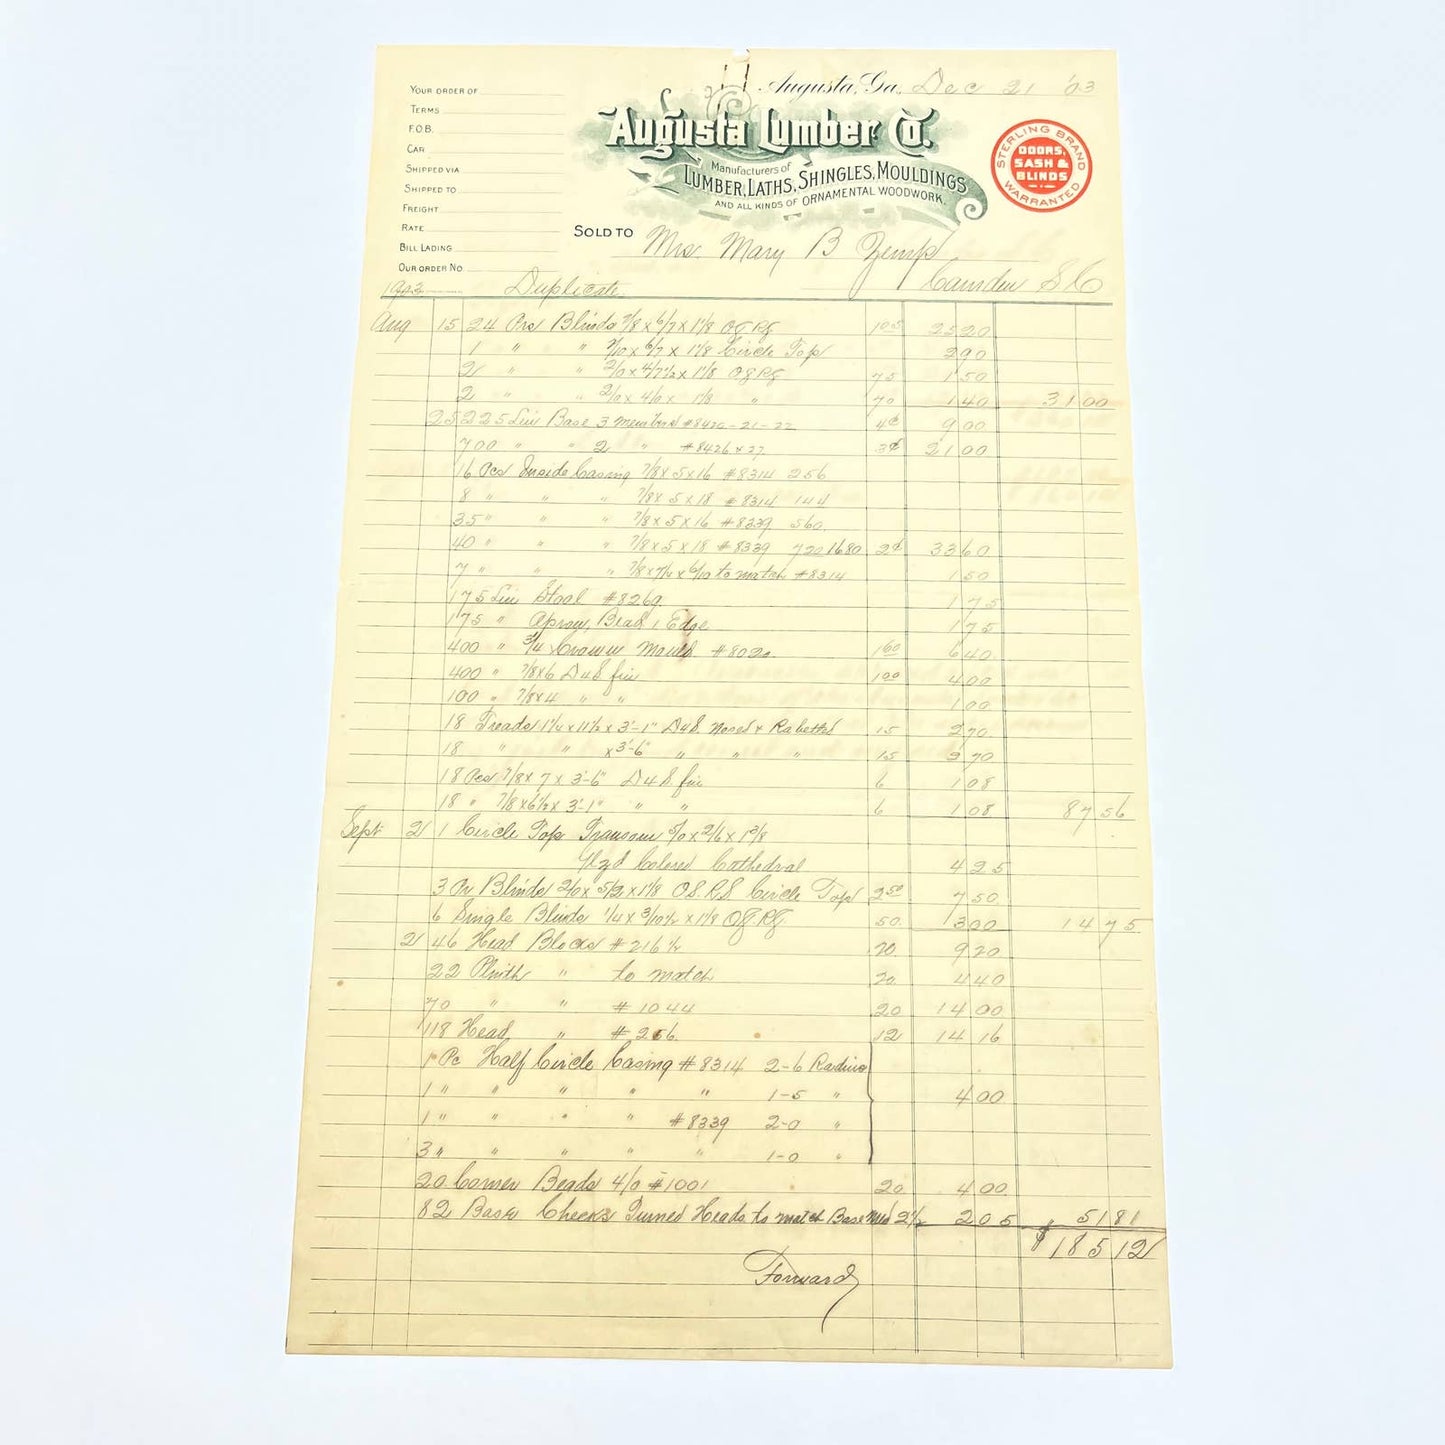 Augusta, Ga. Dec 21 '03
YOUR ORDER OF
TERMS
F.O.B.
CAR
SHIPPED VIA
SHIPPED TO
FREIGHT
RATE
BILL LADING
OUR ORDER NO.
Augusta Lumber Co.
Manufacturers of
LUMBER, LATHS, SHINGLES, MOULDINGS
AND ALL KINDS OF ORNAMENTAL WOODWORK.
STERLING BRAND
DOORS,
SASH &
BLINDS
WARRANTED
SOLD TO Mrs. Mary B Zemp
Camden S C
1903 Duplicate
Aug 15 24 Prs Blinds 2/8 x 6/7 x 1 1/8 OG RG 1 05 25 20
1 " " 2/10 x 6/7 x 1 1/8 Circle Top 2 90
2 " " 2/0 x 4/7 1/2 x 1 1/8 OG RG 75 1 50
2 " " 2/0 x 4/0 x 1 1/8 " 70 1 40 31 00
25 225 Lin Base 3 members #8420-21-22 4¢ 9 00
700 " " 2 " #8426 x 27 3¢ 21 00
16 Pcs Inside Casing 7/8 x 5 x 16 #8314 256
8 " " " 7/8 x 5 x 18 #8314 144
35 " " " 7/8 x 5 x 16 #8339 560
40 " " " 7/8 x 5 x 18 #8339 720 1680 2¢ 33 60
7 " " " 7/8 x 7/4 x 6/10 to match #8314 1 50
175 Lin Stool #8269 1 75
175 " Apron, Bead 1 Edge 1 75
400 " 3/4 Crown Mould #8020 1 60 6 40
400 " 7/8 x 6 D4S fin 1 00 4 00
100 " 7/8 x 4 " " 1 00
18 Treads 1 1/4 x 11 1/2 x 3'-1" D4S Nosed & Rabetted 15 2 70
18 " " x 3'-6" " " " 15 2 70
18 Pcs 7/8 x 7 x 3'-6" D4S fin 6 1 08
18 " 7/8 x 6 1/2 x 3'-1" " " 6 1 08 87 56
Sept 2 1 Circle Top Transom 5/0 x 2/6 x 1 3/8
Glzd Colored Cathedral 4 25
3 Pr Blinds 2/0 x 5/2 x 1 1/8 O.S. R.S. Circle Top 2 50 7 50
6 Single Blinds 1/4 x 3/10 1/2 x 1 1/8 OG RG 50 3 00 14 75
2 46 Head Blocks #216 1/2 20 9 20
22 Plinth " to match 20 4 40
70 " " #1044 20 14 00
118 Head " #206 12 14 16
1 Pc Half Circle Casing #8314 2-6 Radius
1 " " " " " 1-5 " 4 00
1 " " " " #8339 2-0 "
3 " " " " " 1-0 "
20 Corner Beads 4/0 #1001 20 4 00
82 Base Checks Turned Heads to match Base Mld 2 1/2 2 05 51 81
$185 12
Forward